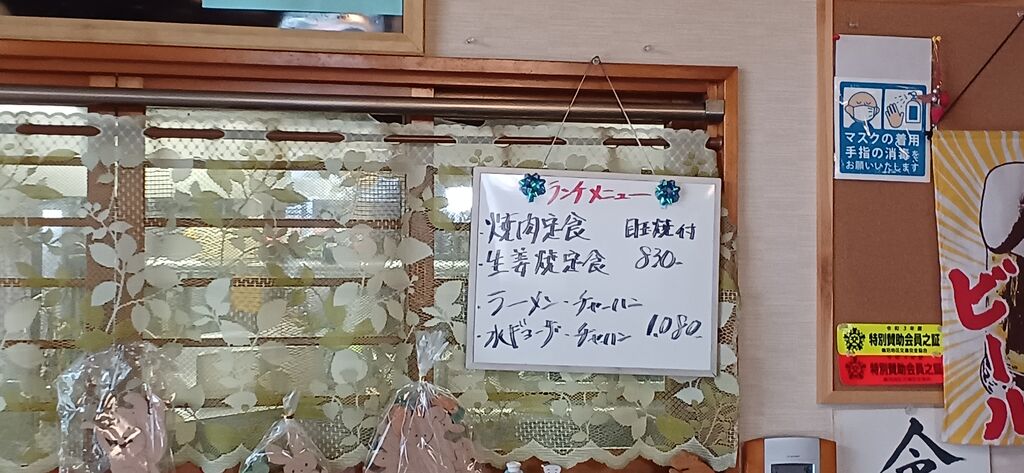 ランチメニュー
・焼肉定食 目玉焼付
・生姜焼定食 830-
・ラーメン・チャーハン
・水ギョーザ・チャーハン 1.080-
マスクの着用
手指の消毒を
お願いいたします
令和3年度
特別賛助会員之証
特別賛助会員之証
ビール